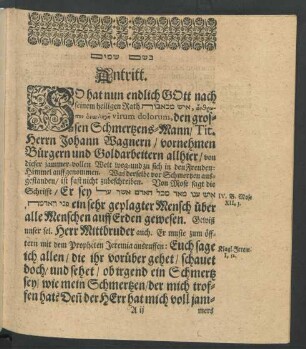 בשם שמים
Antritt.
SO hat nun endlich GOtt nach
seinem heiligen Rath איש מכאבות,
virum dolorum, den gros-
sen Schmertzens-Mann/ Tit.
Herrn Johann Wagnern/ vornehmen
Bürgern und Goldarbeitern allhier/ von
dieser jammer-vollen Welt weg- und zu sich in den Freuden-
Himmel auffgenommen. Was derselbe vor Schmertzen auß-
gestanden/ ist fast nicht zubeschreiben. Von Mose sagt die
Schrifft/ Er sey
IV. B. Mose
XII, 3.
ein sehr geplagter Mensch über
alle Menschen auff Erden gewesen. Gewiß
unser sel. Herr Mitbruder auch. Er muste zum öff-
tern mit dem Propheten Jeremia ausruffen: Euch sage
Klagl. Jerem.
I, 12.
ich allen/ die ihr vorüber gehet/ schauet
doch/ und sehet/ ob irgend ein Schmertz
sey/ wie mein Schmertzen/ der mich trof-
fen hat? Deñ der HErr hat mich voll jam-
A ij
mers